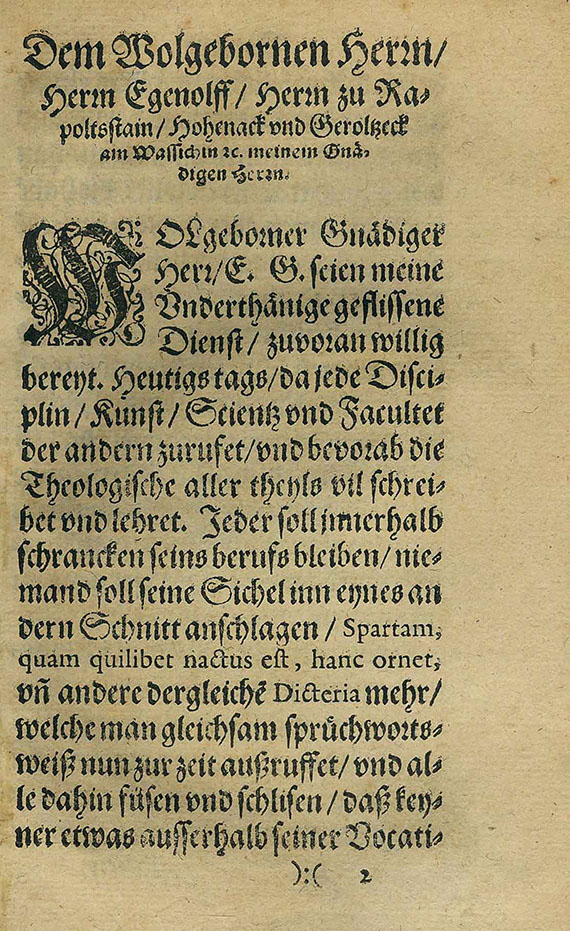 Dem Wolgebornen Herrn/
Herrn Egenolff/ Herrn zu Ra-
poltsstain/ Hohenack vnd Geroltzeck
am Wassichin ꝛc. meinem Gnä-
digen Herrn.
WOLgeborner Gnädiger
Herr/ E. G. seien meine
Vnderthänige geflissene
Dienst/ zuvoran willig
bereyt. Heutigs tags/ da jede Disci-
plin/ Kunst/ Scientz vnd Facultet
der andern zurufet/ vnd bevorab die
Theologische aller theyls vil schrei-
bet vnd lehret. Jeder soll innerhalb
schrancken seins berufs bleiben/ nie-
mand soll seine Sichel inn eynes an
dern Schnitt anschlagen / Spartam,
quam quilibet nactus est, hanc ornet,
vñ andere dergleichẽ Dicteria mehr/
welche man gleichsam sprůchworts-
weiß nun zur zeit außruffet/ vnd al-
le dahin füsen vnd schlisen / daß key-
ner etwas ausserhalb seiner Vocati-
):( 2